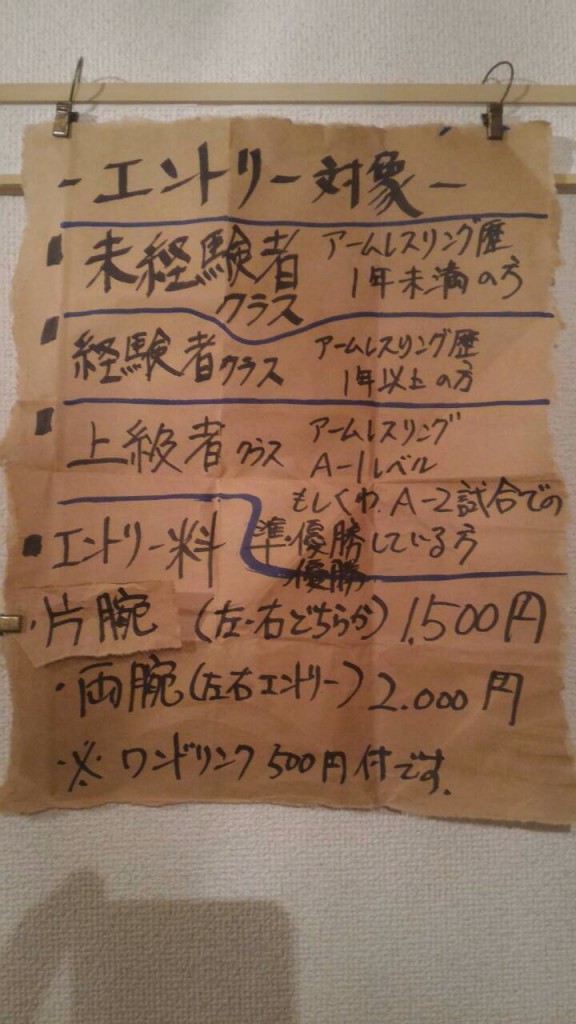 -エントリー対象-
■ 未経験者クラス アームレスリング歴
1年未満の方
■ 経験者クラス アームレスリング歴
1年以上の方
■ 上級者クラス アームレスリング
A-1レベル
もしくわ、A-2試合での
準優勝している方
優勝
■ エントリー料
・片腕 (左・右どちらか) 1,500円
・両腕 (左右エントリー) 2.000円
※ ワンドリンク500円付です.